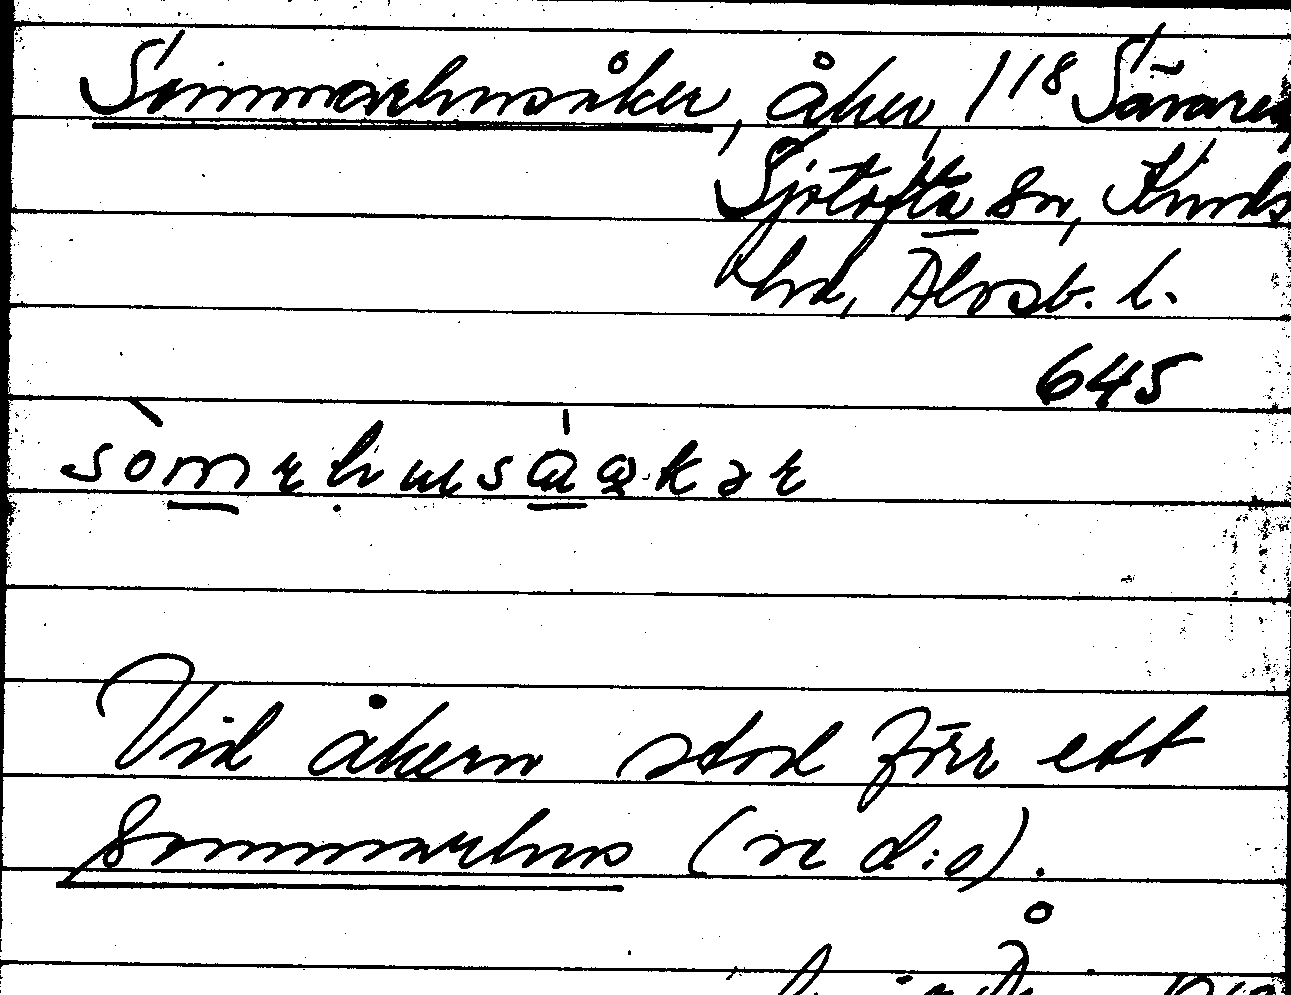 Sommarhusåker, åker, 1/18 Sävared,
Sjötofta sn, Kinds
hd, Älvsb. l.
645
Vid åkern stod förr ett
sommarhus (se d:o).